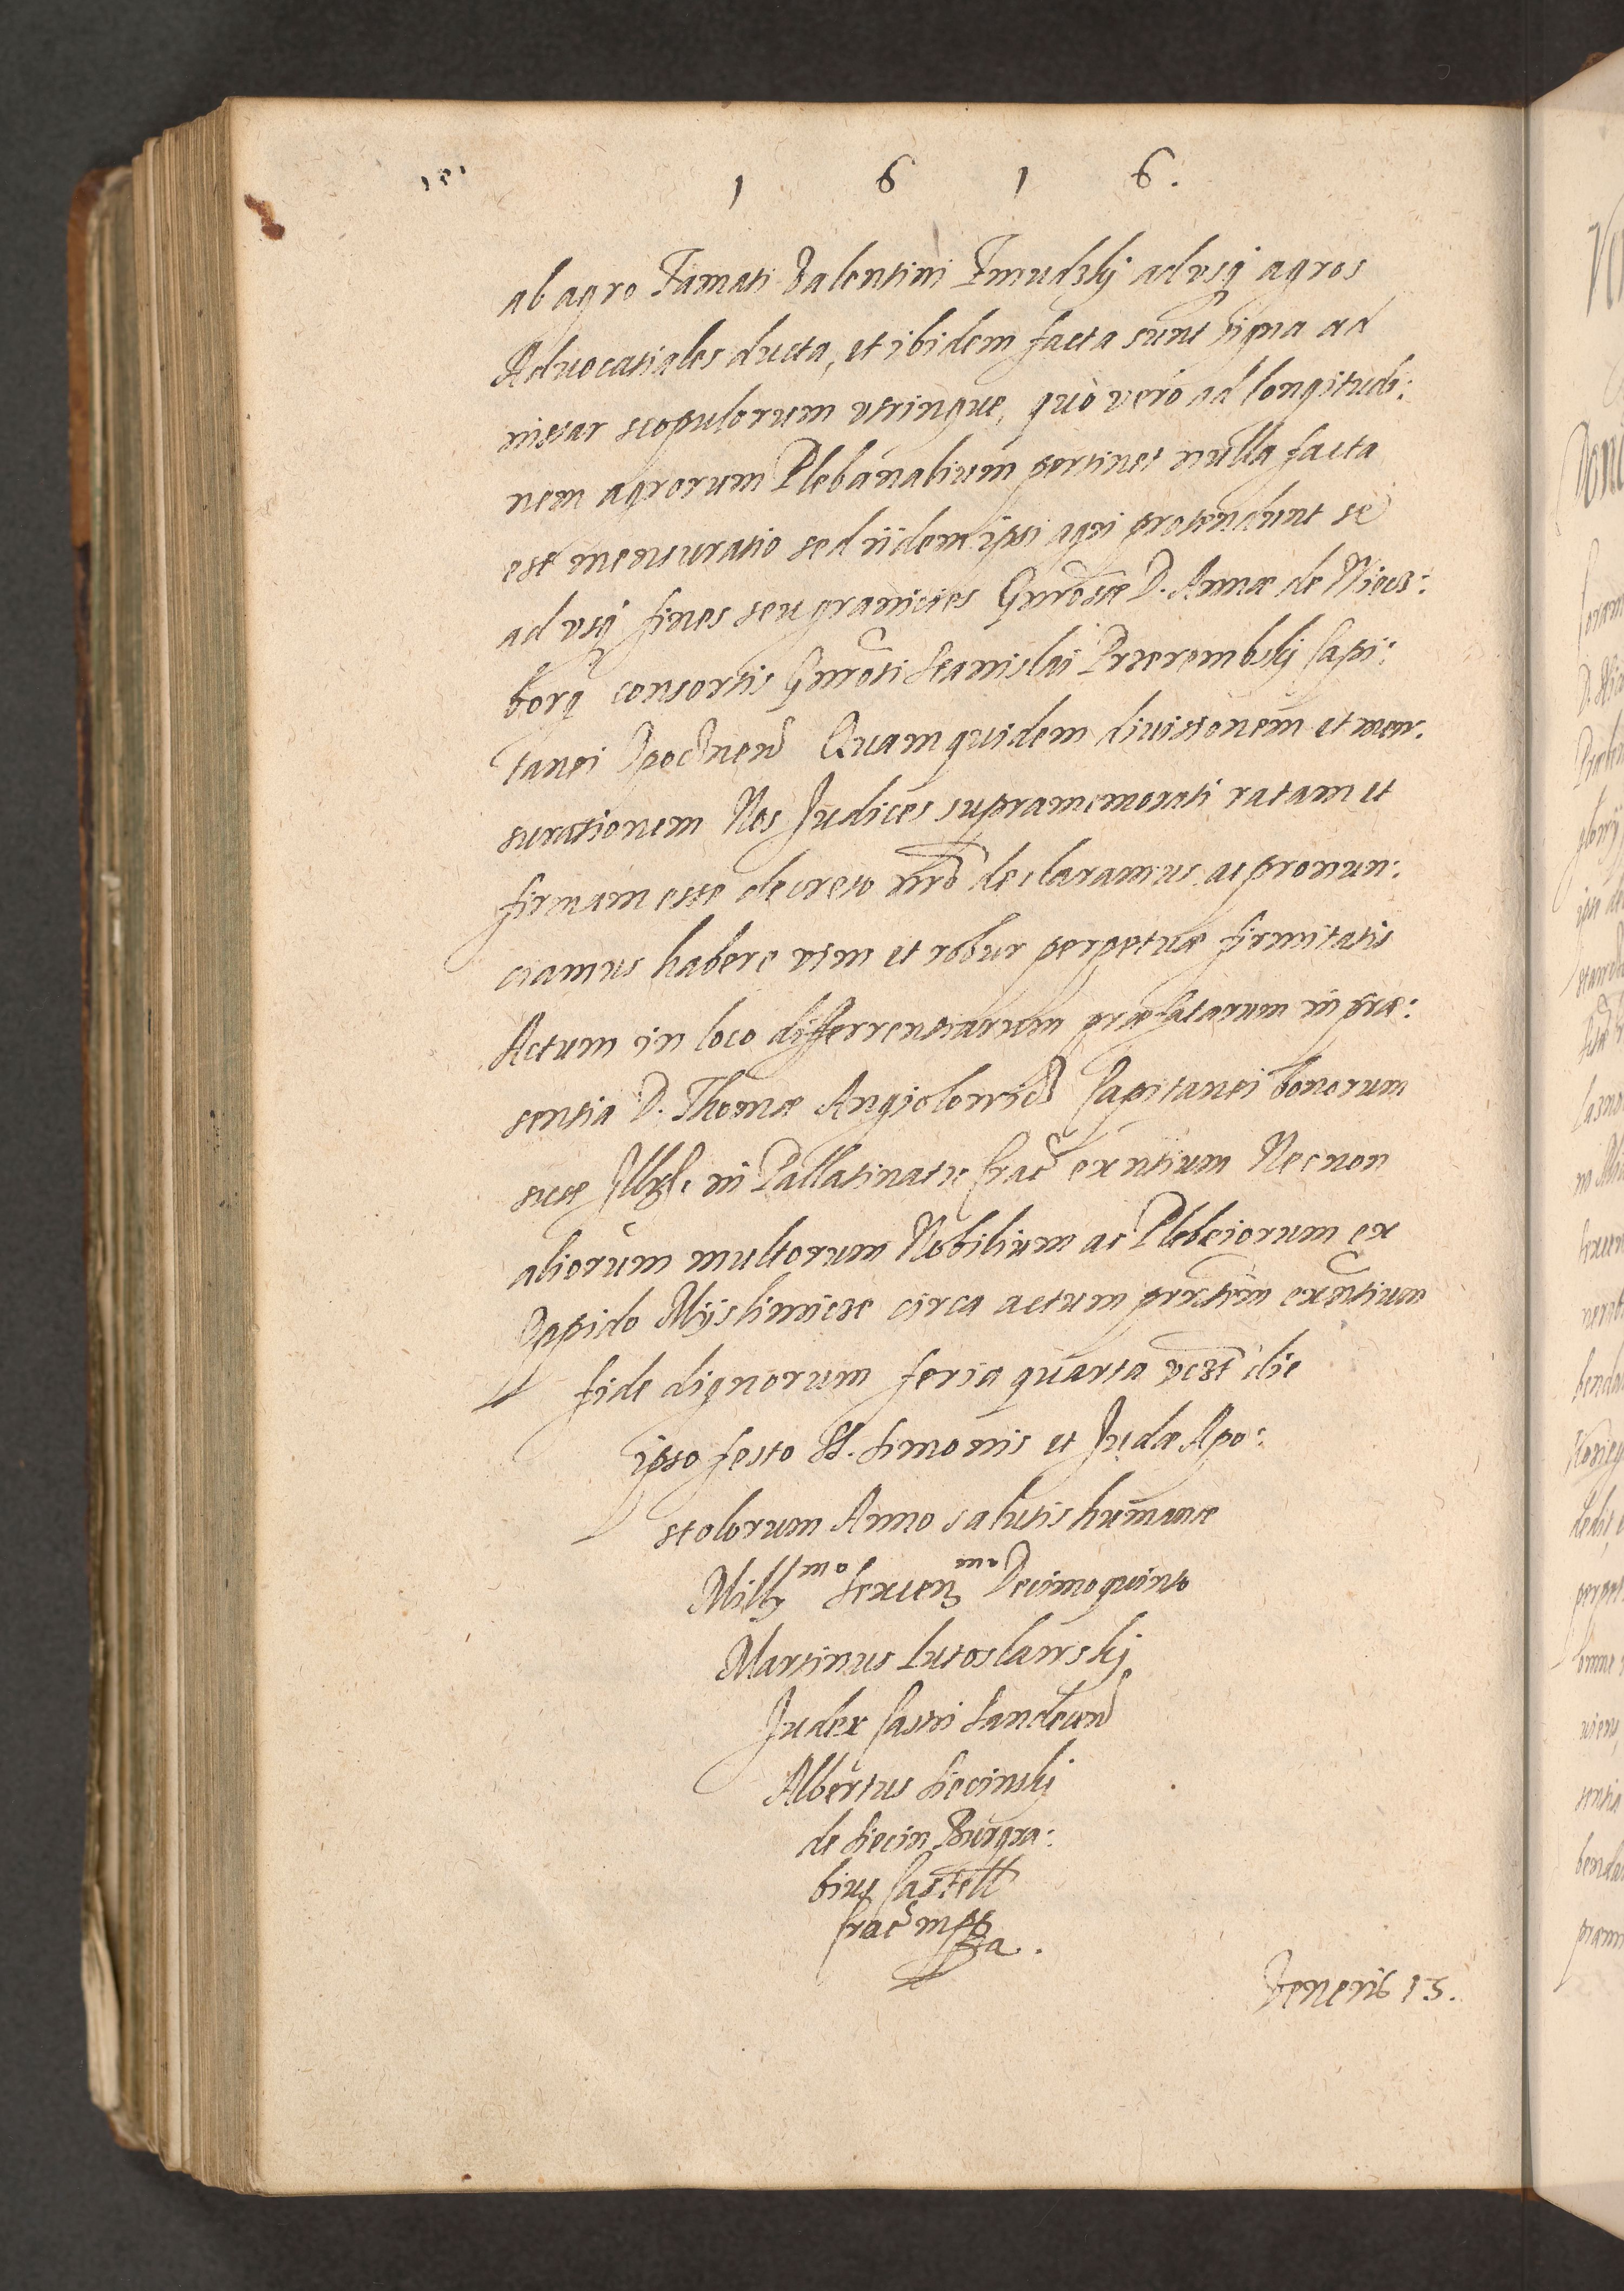 1 6 1 6.
ab agro Famati Valentini Zmudzkÿ ad vsq agros
Aduocatiales ducta, et ibidem facta sunt signa ad
instar scopulorum vtrinque, quò verò ad longitudi:
nem agrorum Plebanalium pertinet nulla facta
est mensuratio sed iidem ipsi agri protendunt se
ad vsq fines seu granicies Gnrosæ D. Annæ de Niecz:
borg consortis Gnrosi Stanislai Przerembskÿ Capi:
tanei Opocznen Quam quidem diuisionem et men:
surationem Nos Judices supramemorati ratam et
firmam esse decreto nrō declaramus, ac pronun:
ciamus habere vim et robur perpetuæ firmitatis
Actum in loco differrentiarum præfatarum in præ:
sentia D. Thomæ Angiolowicz Capitanei bonorum
suæ Illgs. in Pallatinatu Crac exntium Necnon
aliorum multorum Nobilium ac Plebeiorum ex
Oppido Mÿslimicze circa actum prntem exntium
fide dignorum feria quarta vczt die
ipso festo SS. Simonis et Judæ Apo:
stolorum Anno salutis humanæ
Mill mo Sexcen mo Decimoquinto
Martinus Lutoslawskÿ
Judex Castri Sandecen
Albertus Siecinskÿ
de Siecin Burgra:
bius Castell
Crac mpp
Veneris 15.